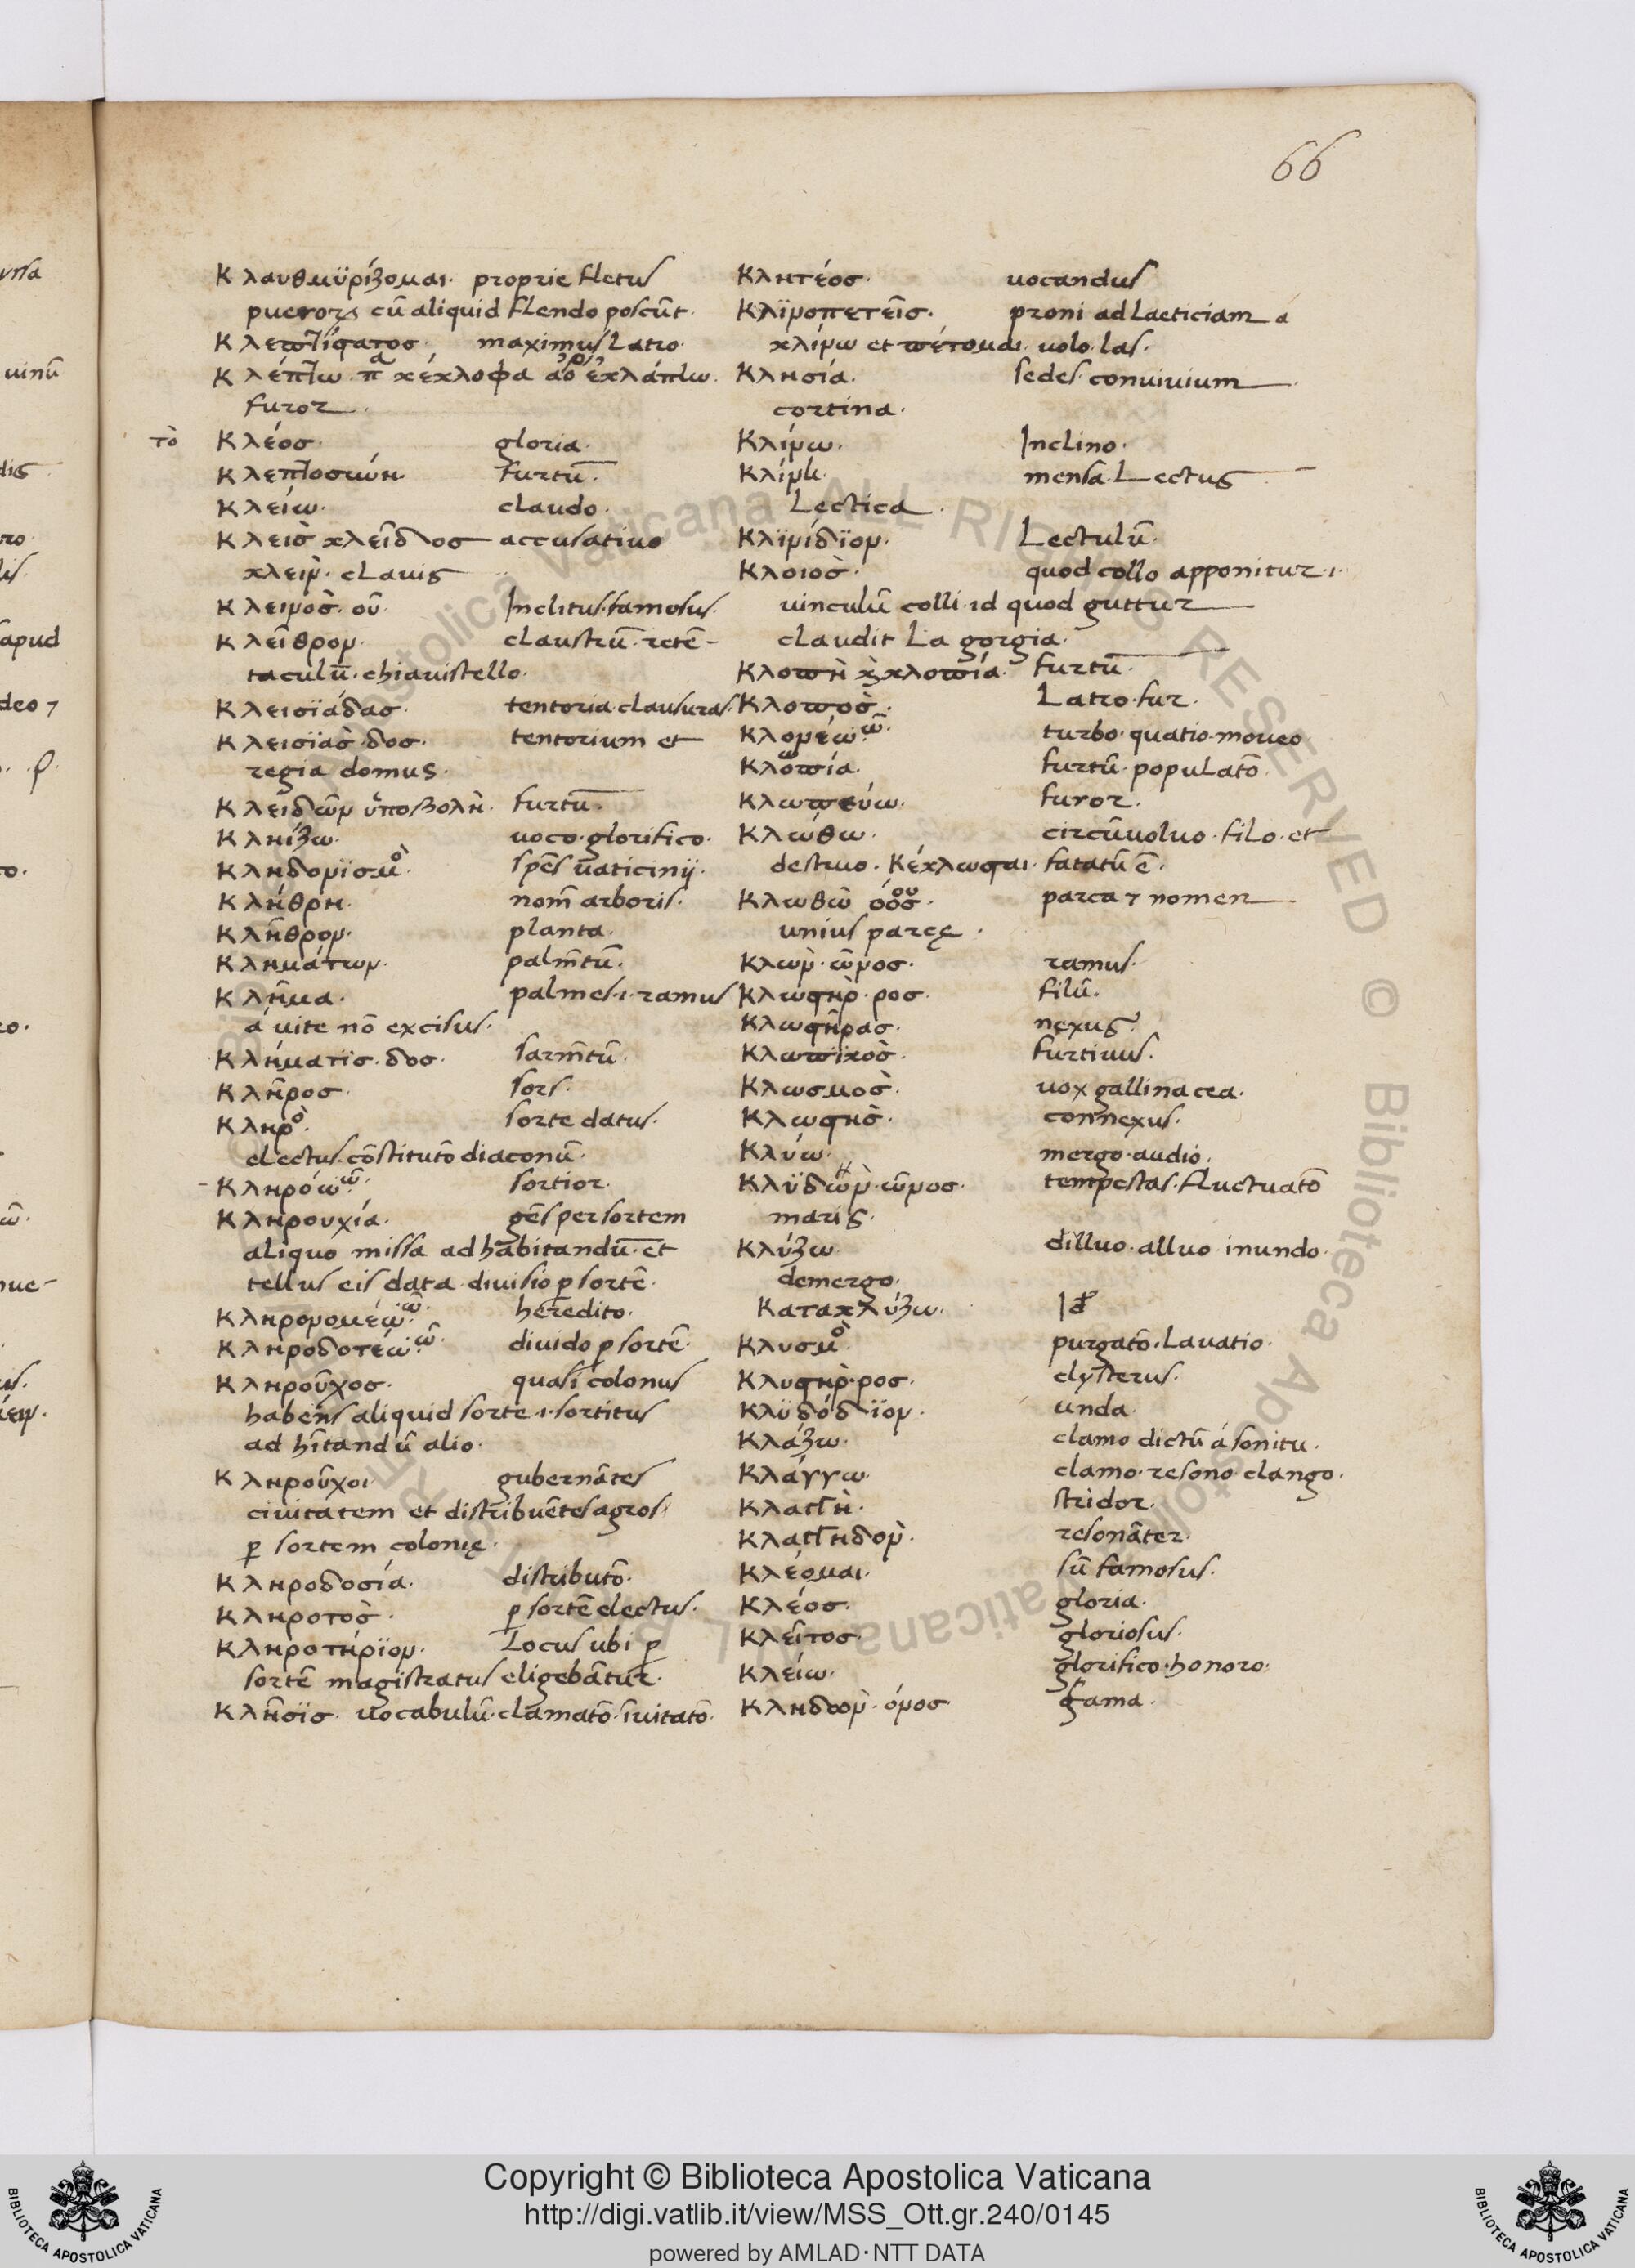 66
Κλαυθμϋρίζομαι· proprie fletus
pueroꝝ cū aliquid flendo poscūt·
Κλεπτίστατος· maximus Latro·
Κλέπτω κέκλοφα ἐκλάπτω·
furor
τὸ Κλέος· gloria·
Κλεπτοσύνη· furtū·
Κλείω· claudo·
Κλεισ κλεῖδος accusativo
κλειν· clauis
Κλεινοσ· οῦ· Inclitus·famosus·
Κλεῖθρον· claustrū·retē-
taculū·chiauistello·
Κλεισϊάδας· tentoria·clausuras·
Κλεισϊασ·δος· tentorium et
regia domus·
Κλειδῶν ὑποβολὴ· furtū·
Κληίζω· uoco·glorifico·
Κληδονϊσμὸ· spēs uaticinij·
Κλήθρη· nom̄ arboris·
Κλῆθρον· planta·
Κλημάτων· palm̄tū·
Κλῆμα· palmes·i·ramus
á uite nō excisus·
Κλήματισ·δος· sarm̄tū·
Κλῆρος· sors·
Κληρὸ· sorte datus·
electus·cōstitutō diaconū·
Κληρόω ῶ· sortior·
Κληρουχία· gēs per sortem
aliquo missa ad habitandū·et
tellus eis data·diuisio ꝑ sortē·
Κληρονομέω·ῶ· heredito·
Κληροδοτέω·ῶ· diuido ꝑ sortē·
Κληροῦχος· quasi colonus
habens aliquid sorte·i·sortitus
ad hītandū alio·
Κληροῦχοι gubernātes
ciuitatem et distribuētes agros
ꝑ sortem colonię·
Κληροδοσία· distributō·
Κληροτοσ· ꝑ sortē electus·
Κληροτήρϊον· Locus ubi ꝑ
sortē magistratus eligebātur·
Κλῆσϊς· uocabulū·clamatō·īuitatō·
Κλητέος· uocandus
Κλϊνοπετεῖσ· proni ad laeticiam a
κλίνω et πέτομαι· uolo·las·
Κλησία· sedes·conuiuium
cortina·
Κλίνω· Inclino·
Κλίνη· mensa·Lectus
Lectica·
Κλϊνίδϊον· Lectulū·
Κλοιοσ· quod collo apponitur·i·
uinculū colli·id quod guttur
claudit la gorgia·
Κλοπὴ κλοπία· furtū·
Κλοποσ· Latro·fur·
Κλονέω·ῶ· turbo·quatio·moueo
Κλοπία· furtū·populatō·
Κλωπεύω· furor·
Κλώθω· circūuoluo·filo·et
destruo·Κέκλωσται· fatatū ē·
Κλωθὼ όοσ· parca ⁊ nomen
unius parcę·
Κλων·ῶνος· ramus·
Κλώστηρ·ρος· filū·
Κλωστῆρας· nexus·
Κλωπϊκοσ· furtiuus·
Κλωσμοσ· uox gallinacea·
Κλωστησ· connexus·
Κλύω· mergo·audio·
Κλϋδων·ῶνος· tempestas·fluctuatō
maris·
Κλύζω dilluo·alluo·inundo·
demergo·
Κατακλύζω· Id
Κλυσμὸ· purgatō·Lauatio·
Κλυστηρ·ρος· clysterus·
Κλϋδόδϊον· unda·
Κλάζω· clamo dictū á sonitu·
Κλάγγω· clamo·resono clango·
Κλαγγὴ· stridor·
Κλαγγηδον· resonāter·
Κλέομαι· sū famosus·
Κλέος· gloria·
Κλεῖτος· gloriosus·
Κλείω· glorifico·honoro·
Κληδων·όνος fama·
Copyright © Biblioteca Apostolica Vaticana
http://digi.vatlib.it/view/MSS_Ott.gr.240/0145
powered by AMLAD·NTT DATA
BIBLIOTECA APOSTOLICA VATICANA
BIBLIOTECA APOSTOLICA VATICANA